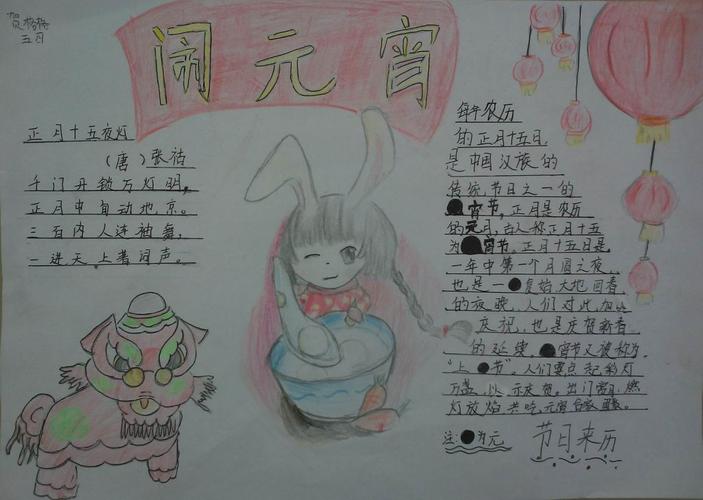 贺格格
五月
闹元宵
正月十五夜灯
（唐）张祜
千门开锁万灯明，
正月中旬动地京。
三百内人连袖舞，
一进天上著词声。
每年农历
的正月十五日
是中国汉族的
传统节日之一的
●宵节。正月是农历
的元月，古人称正月十五
为●宵节。正月十五日是
一年中第一个月圆之夜，
也是一●复始大地回春
的夜晚，人们对此加以
庆祝，也是庆贺新春
的延续●宵节又被称为
“上●节”。人们要点起彩灯
万盏，以示庆贺。出门赏月，燃
灯放焰共吃元宵
注：●为元
节日来历